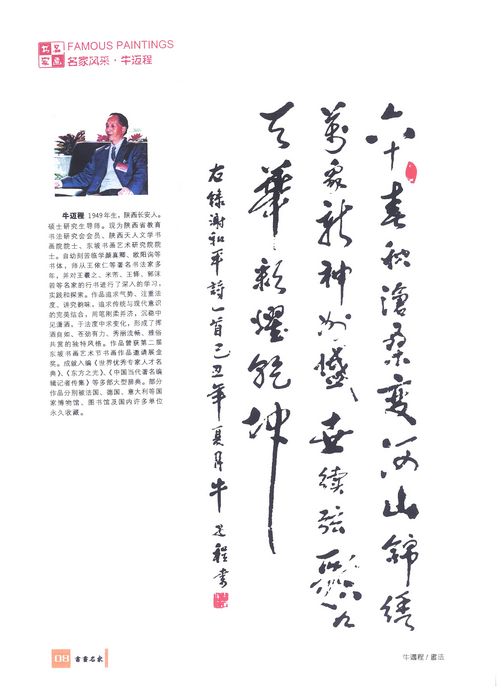 书画名家
FAMOUS PAINTINGS
名家风采·牛迈程
六十春秋滄桑變河山錦繡
萬象新神州盛世续九
天華彩耀乾坤
右錄謝和平詩一首己丑年夏月牛迈程書
牛迈程 1949年生，陕西长安人。
硕士研究生导师。现为陕西省教育
书法研究会会员、陕西天人文学书
画院院士、东坡书画艺术研究院院
士。自幼刻苦临学颜真卿、欧阳询等
书体，师从王依仁等著名书法家多
年，并对王羲之、米芾、王铎、郭沫
若等名家的行书进行了深入的学习，
实践和探索。作品追求气势、注重法
度、讲究韵味，追求传统与现代意识
的完美结合，用笔刚柔并济，沉稳中
见潇洒，于法度中求变化，形成了挥
洒自如、苍劲有力、秀丽流畅、雅俗
共赏的独特风格。作品曾获第二届
东坡书画艺术节书画作品邀请展金
奖。成就入编《世界优秀专家人才名
典》、《东方之光》、《中国当代著名编
辑记者传集》等多部大型辞典。部分
作品分别被法国、德国、意大利等国
家博物馆、图书馆及国内许多单位
永久收藏。
08 書畫名家
牛迈程/书法